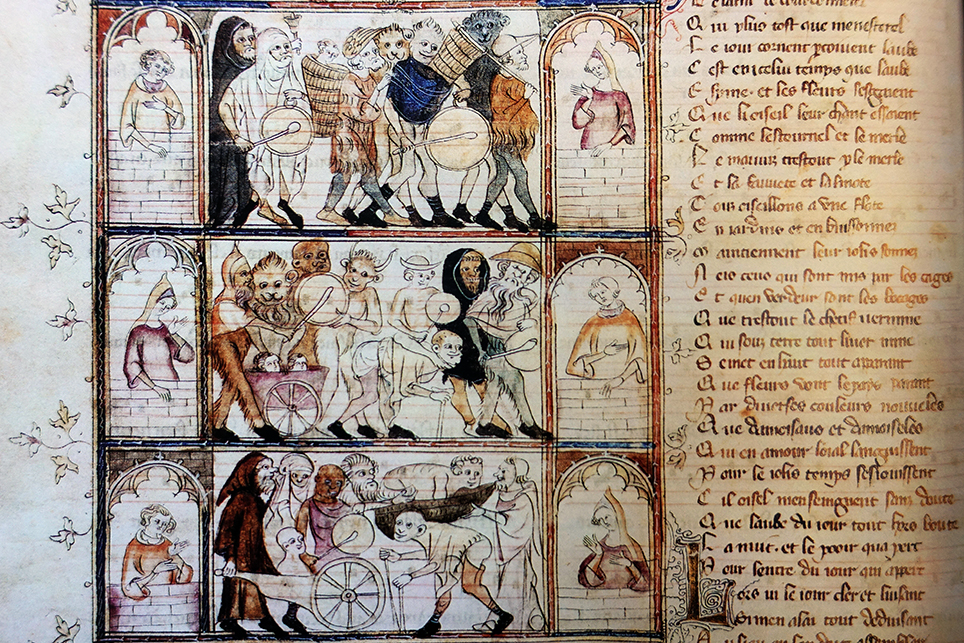 Q ui plus tost que menesterel
L e iour cornent laube
C est en icelui temps que laube
E et les fleurs
Q ue li oiseil leur chant essaient
C omme lestournel et le merle
L e mauuiz trestout le merle
E t la fauuete et la linote
oiseillons a vne flote
E n iardins et en buissonnez
leur iolis sonnez
N eis ceus qui sont mis par les cages
E t quen verdeur sont les bocages
Q ue trestout le chetif vermine
Q ui souz terre tout liuer mine
S en haut tout aparant
Q ue fleurs vont le pais parant
P ar diuerses couleurs nouueles
Q ue damoisaus et damoiseles
Q ui en amour loial languissent
P our le iolis temps sesioissent
C il oisel menseingnent sanz doute
Q ue laube du iour tout hors boute
L a nuit et le pooir qua
P our lentre du iour qui apert
L ors vi le iour cler et luisant
tout deduisant